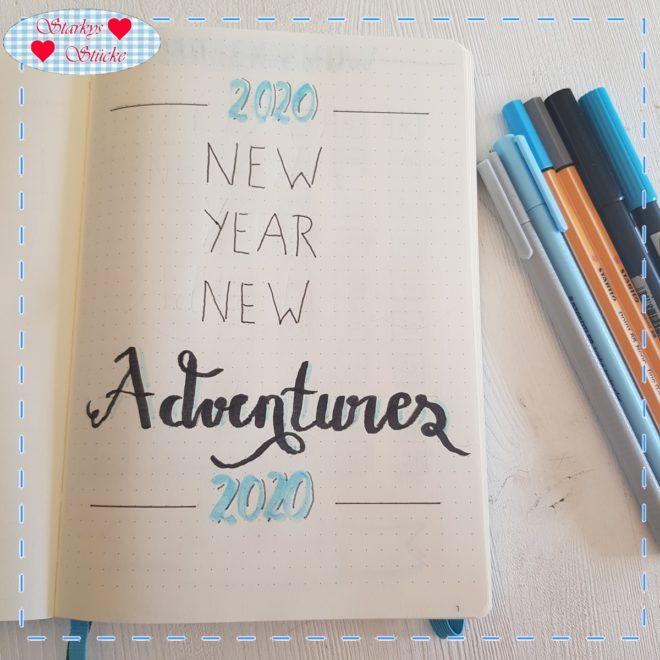 Starkys
Stücke
2020
NEW
YEAR
NEW
Adventures
2020
STABILO
1